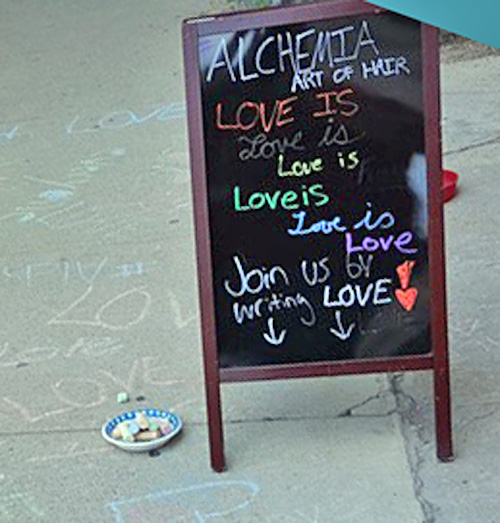 ALCHEMIA
ART OF HAIR
LOVE IS
Love is
Love is
Love is
Love is
Love
Join us by
writing LOVE!
LOVE
LOVE